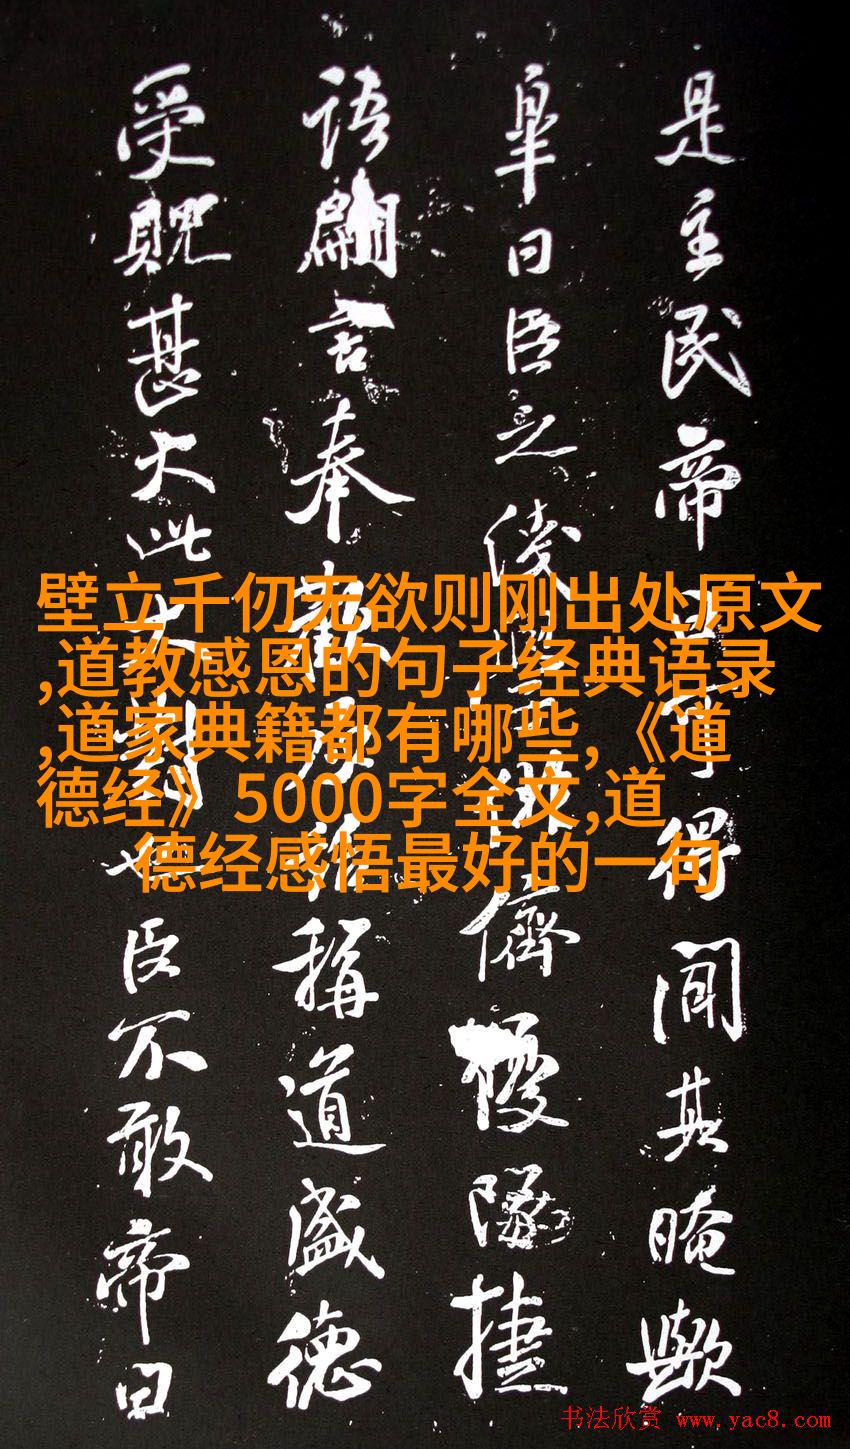 是主民帝得聞其晻歟
皐曰臣之儕優隊捷
語翩言奉稱道盛德
受貺甚大此臣不敢帝曰
壁立千仞无欲则刚出处原文
,道教感恩的句子经典语录
,道家典籍都有哪些,《道
德经》5000字全文,道
德经感悟最好的一句
书法欣赏 www.yac8.com